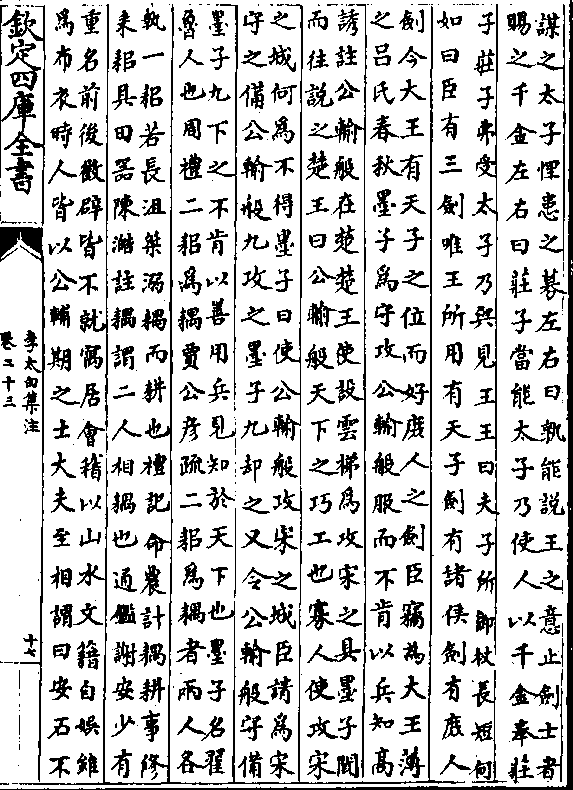 謀之太子悝患之募左右曰孰能說王之意止劍士者
賜之千金左右曰莊子當能太子乃使人以千金奉莊
子莊子弗受太子乃與見王王曰夫子所御杖長短何
如曰臣有三劍唯王所用有天子劍有諸侯劍有庶人
劍今大王有天子之位而好庶人之劍臣竊為大王薄
之呂氏春秋墨子為守攻公輸般服而不肯以兵知高
誘註公輸般在楚楚王使設雲梯為攻宋之具墨子聞
而往說之楚王曰公輸般天下之巧工也寡人使攻宋
之城何為不得墨子曰使公輸般攻宋之城臣請為宋
守之備公輸般九攻之墨子九却之又令公輸般守備
墨子九下之不肯以善用兵見知於天下也墨子名翟
魯人也周禮二耜為耦賈公彥疏二耜為耦者兩人各
執一耜若長沮桀溺耦而耕也禮記命農計耦耕事修
耒耜具田器陳澔註耦謂二人相耦也通鑑謝安少有
重名前後徵辟皆不就寓居會稽以山水文籍自娛雖
為布衣時人皆以公輔期之士大夫至相謂曰安石不
欽定四庫全書
李太白集注
卷二十三
十七